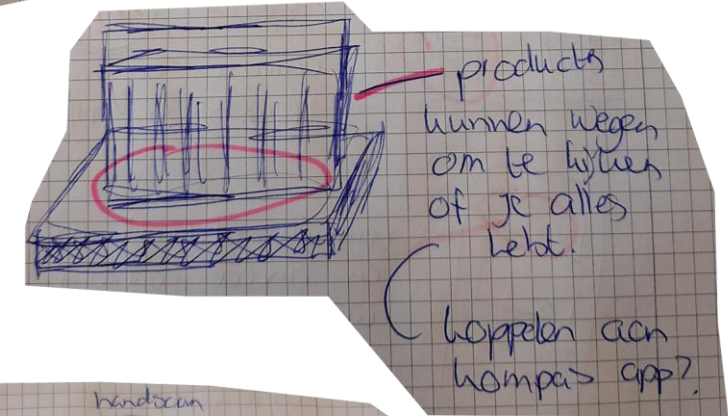 products
kunnen wegen
om te kijken
of je alles
hebt.
koppelen aan
kompas app?
handscan